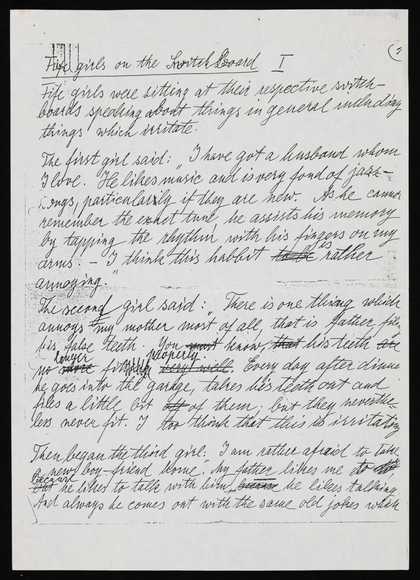 Fife girls on the Switch Board I
Fife girls were sitting at their respective switch-
boards speaking about things in general including
things which irritate.
The first girl said: „I have got a husband whom
I love. He likes music and is very fond of jazz-
songs, particularly if they are new. As he cannot
remember the exact tune he assists his memory
by tapping the rhythm with his fingers on my
arms. – I think this habbit is rather
annoying."
The second girl said: „There is one thing which
annoys my mother most of all, that is father
his false teeth. You know, his teeth
no longer fit properly. Every day after dinner
he goes into the garage, takes his teeth out and
files a little bit off of them; but they neverthe-
less never fit. I too think that this is irritating
Then began the third girl: I am rather afraid to take
a new boy-friend home. My father likes me
he likes to talk with him, he likes talking
And always he comes out with the same old jokes which